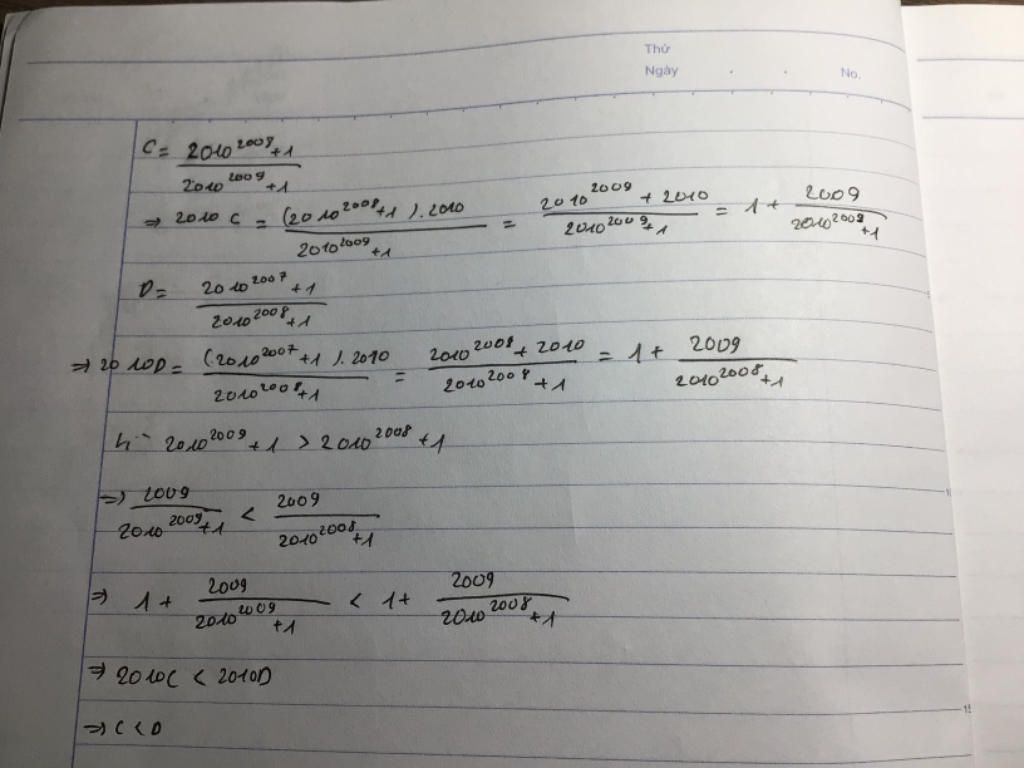 Thứ
Ngày . . No.
C = (2010^2008 + 1) / (2010^2009 + 1)
⇒ 2010 C = ((2010^2008 + 1).2010) / (2010^2009 + 1) = (2010^2009 + 2010) / (2010^2009 + 1) = 1 + 2009 / (2010^2009 + 1)
D = (2010^2007 + 1) / (2010^2008 + 1)
⇒ 2010D = ((2010^2007 + 1).2010) / (2010^2008 + 1) = (2010^2008 + 2010) / (2010^2008 + 1) = 1 + 2009 / (2010^2008 + 1)
2010^2009 + 1 > 2010^2008 + 1
⇒ 2009 / (2010^2009 + 1) < 2009 / (2010^2008 + 1)
⇒ 1 + 2009 / (2010^2009 + 1) < 1 + 2009 / (2010^2008 + 1)
⇒ 2010C < 2010D
⇒ C < D